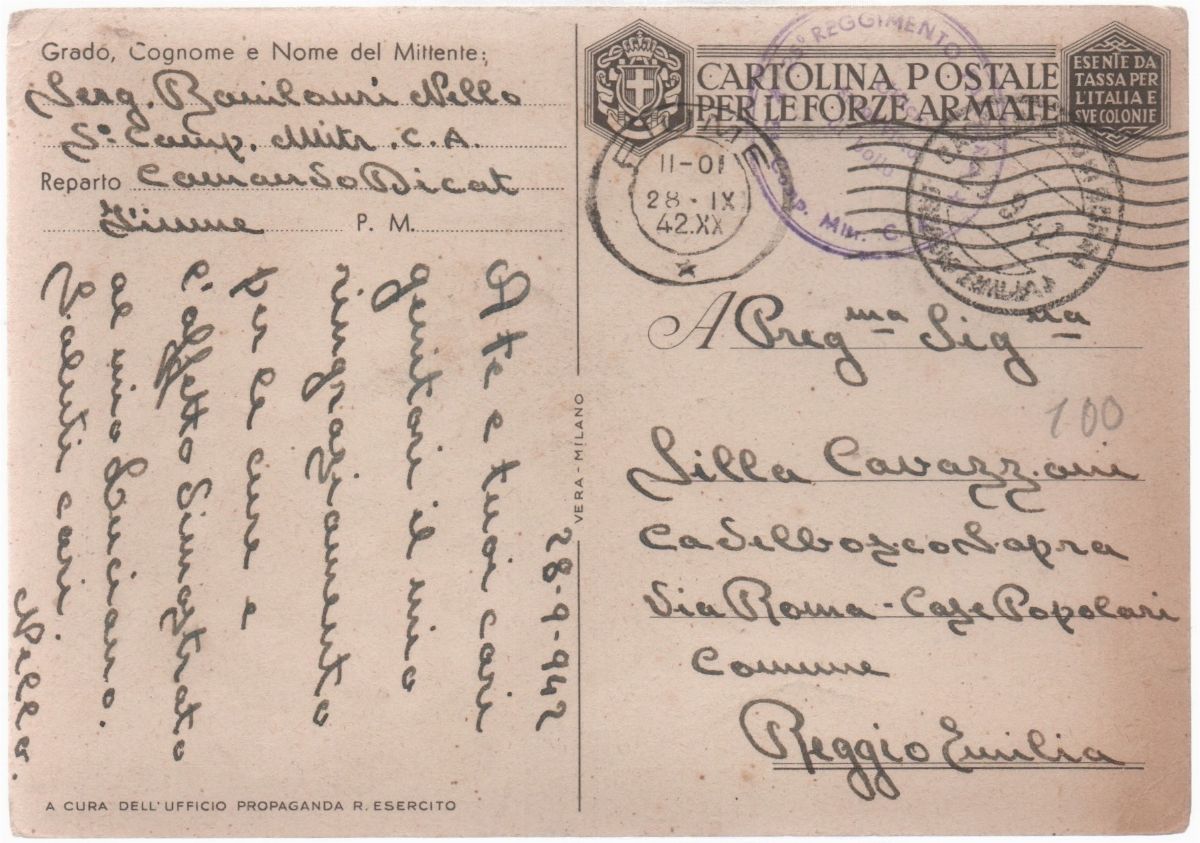 Grado, Cognome e Nome del Mittente:
Serg. Nello
5ª Comp. Mitr. C. A.
Reparto Comando Dicat
Fiume P. M.
28-9-942
A te e tuoi cari
genitori il mio
ringraziamento
per le cure e
l'affetto dimostrato
al mio Luciano.
Saluti cari
Nello.
A CURA DELL'UFFICIO PROPAGANDA R. ESERCITO
VERA - MILANO
CARTOLINA POSTALE
PER LE FORZE ARMATE
ESENTE DA
TASSA PER
L'ITALIA E
SVE COLONIE
REGGIMENTO
MITR. C
11-01
28·IX
42.XX
A Preg ma Sig na
100
Lilla Cavazzoni
Cadelbosco Sopra
Via Roma - Case Popolari
Comune
Reggio Emilia